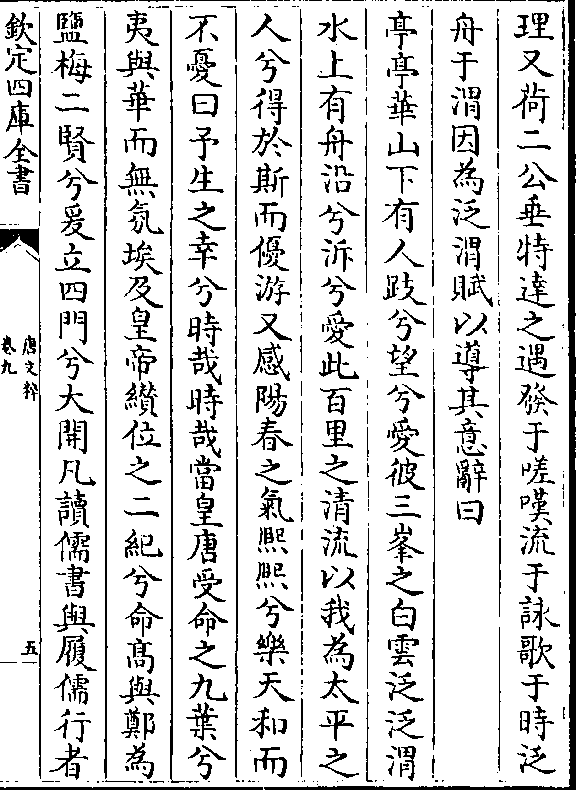 理又荷二公垂特達之遇發于嗟嘆流于詠歌于時泛
舟于渭因為泛渭賦以導其意辭曰
亭亭華山下有人跂兮望兮愛彼三峯之白雲泛泛渭
水上有舟沿兮泝兮愛此百里之清流以我為太平之
人兮得於斯而優游又感陽春之氣熙熙兮樂天和而
不憂曰予生之幸兮時哉時哉當皇唐受命之九葉兮
夷與華而無氛埃及皇帝纘位之二紀兮命髙與鄭為
鹽梅二賢兮爰立四門兮大開凡讀儒書與履儒行者
欽定四庫全書
唐文粹
卷九
五